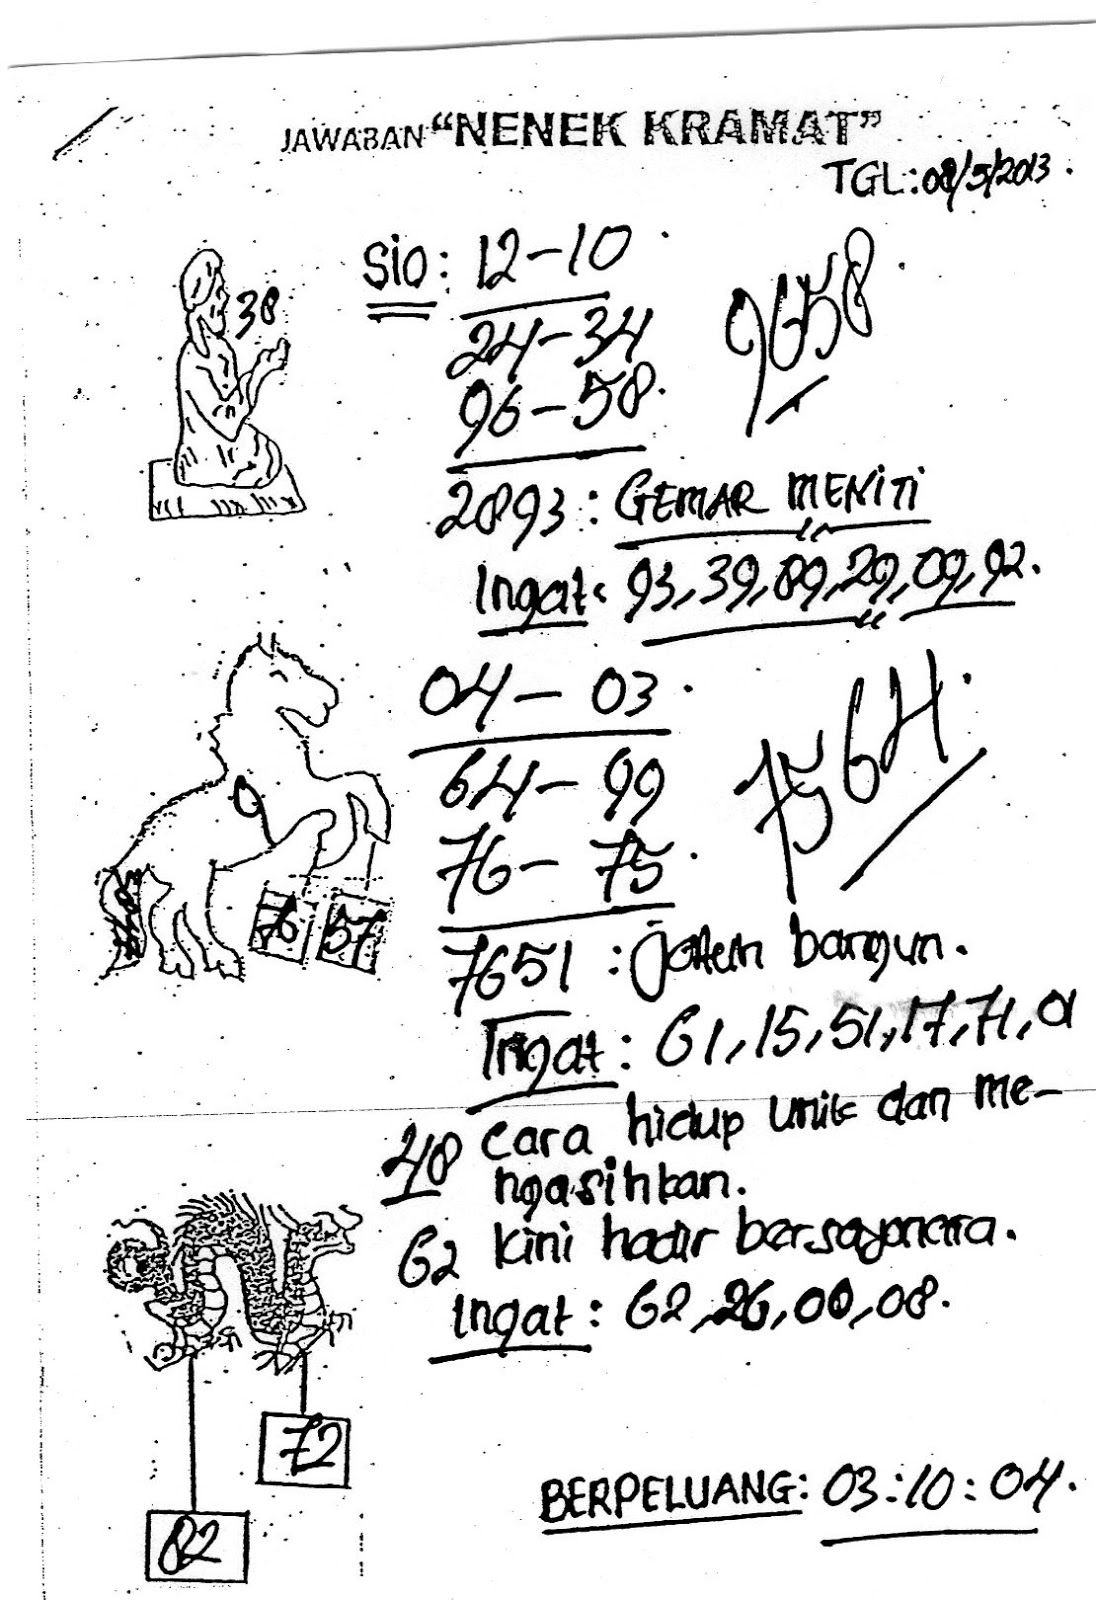 JAWABAN "NENEK KRAMAT"
TGL: 08/5/2013.
38
SIO: 12-10
24-34
96-58.
9658
2893: GEMAR MENITI
Ingat: 93,39,89,29,09,92.
04 - 03.
64 - 99
76 - 75.
7564
76 57
7651: bangun.
Ingat: 61,15,51,17,71,01
48 Cara hidup unik dan me-
ngasihkan.
62 kini hadir
Ingat: 62,26,00,08.
72
82
BERPELUANG: 03:10:04.